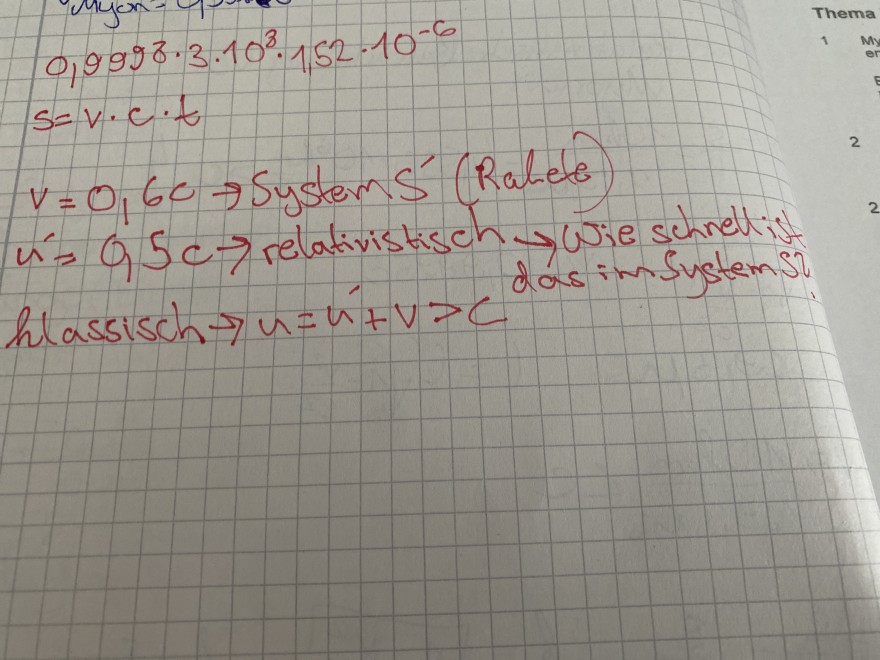 Myon-
0,9998·3·10⁸·1,52·10⁻⁶
s=v·c·t
v=0,6c→System S' (Rakete)
u'=0,5c→relativistisch→Wie schnell ist
das im System S?
klassisch→u=u'+v>c
Thema
1 My
er
E
2
2